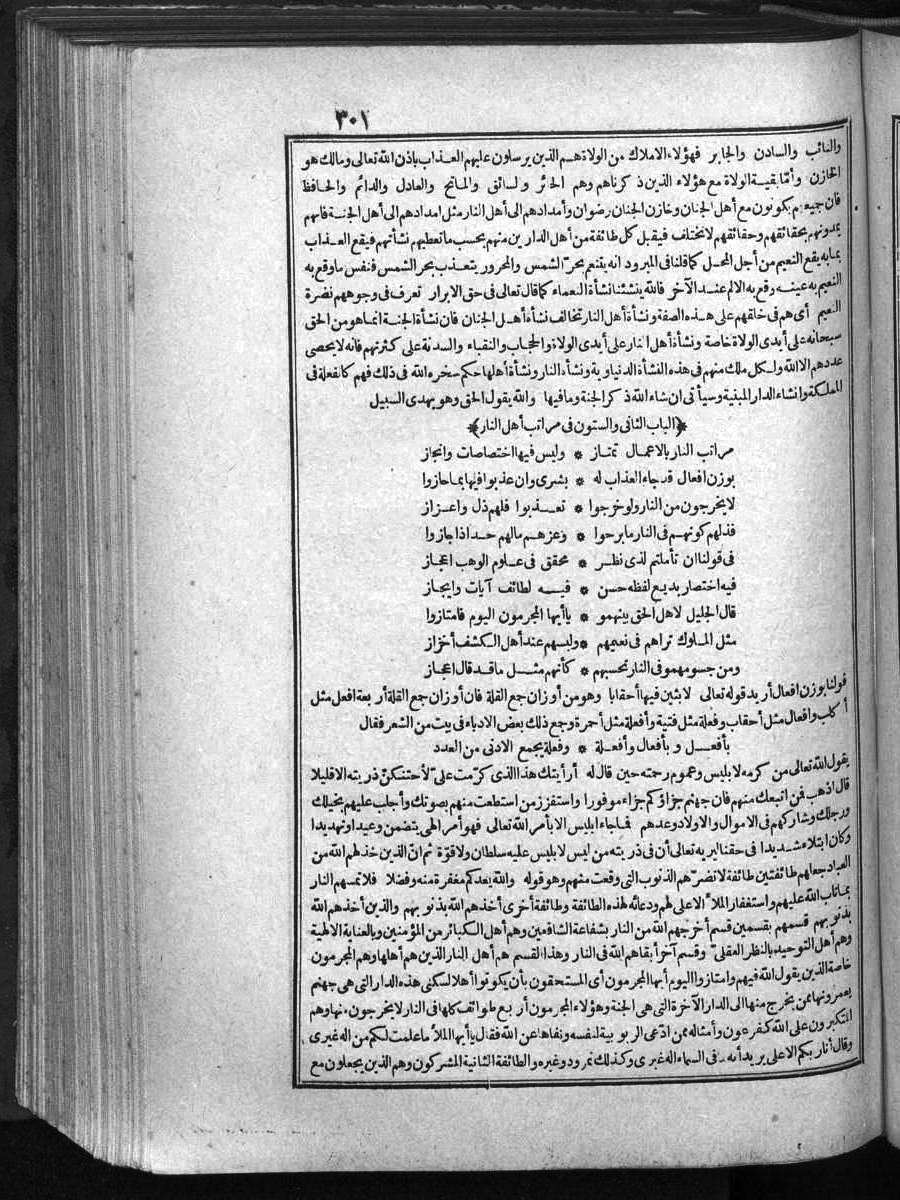 ٣٠١
والنائب والسادن والجابر فهؤلاء الاملاك من الولاة هم الذين يرسلون عليهم العذاب باذن الله تعالى ومالك هو
الخازن وأما بقية الولاة مع هؤلاء الذين ذكرناهم وهم الحائر والسائق والماتح والعادل والدائم والحافظ
فان جيعهم يكونون مع أهل الجنان وخازن الجنان رضوان وأمدادهم الى أهل النار مثل امدادهم الى أهل الجنة فانهم
يمدونهم بحقائقهم وحقائقهم لا تختلف فيقبل كل طائفة من أهل الدارين منهم بحسب ما تعطيهم نشأتهم فيقع العذاب
بما به يقع النعيم من أجل المحل كما قلنا فى المبرود انه يتنعم بحرّ الشمس والمحرور يتعذب بحر الشمس فنفس ما وقع به
النعيم به عينه وقع به الالم عند الآخر فالله ينشئنا نشأة النعماء كما قال تعالى فى حق الابرار تعرف فى وجوههم نضرة
النعيم أى هم فى خلقهم على هذه الصفة ونشأة أهل النار تخالف نشأة أهل الجنان فان نشأة الجنة انما هو من الحق
سبحانه على أيدى الولاة خاصة ونشأة أهل النار على أيدى الولاة والحجاب والنقباء والسدنة على كثرتهم فانه لا يحصى
عددهم الا الله ولكل ملك منهم فى هذه النشأة الدنياوية ونشأة النار ونشأة أهلها حكم سخره الله فى ذلك فهم كالفعلة فى
المملكة وانشاء الدار المبنية وسيأتى ان شاء الله ذكر الجنة وما فيها والله يقول الحق وهو يهدى السبيل
﴿الباب الثانى والستون فى مراتب أهل النار﴾
مراتب النار بالاعمال تمتاز * وليس فيها اختصاصات وانجاز
بوزن افعال قد جاء العذاب له * بشرى وان عذبوا فيها بما حازوا
لا يخرجون من النار ولو خرجوا * تعذبوا فلهم ذل واعزاز
فذلهم كونهم فى النار ما برحوا * وعزهم مالهم حد اذا جازوا
فى قولنا ان تأملتم لذى نظر * محقق فى علوم الوهب اعجاز
فيه اختصار بديع لفظه حسن * فيه لطائف آيات وايجاز
قال الجليل لاهل الحق بينهمو * يا أيها المجرمون اليوم فامتازوا
مثل الملوك تراهم فى نعيمهم * ولبسهم عند أهل الكشف أخزاز
ومن جسومهمو فى النار تحسبهم * كأنهم مثل ما قد قال اعجاز
قولنا بوزن افعال أريد قوله تعالى لابثين فيها أحقابا وهو من أوزان جع القلة فان أوزان جع القلة أربعة افعل مثل
أكلب وافعال مثل أحقاب وفعلة مثل فتية وأفعلة مثل أحمرة وجع ذلك بعض الادباء فى بيت من الشعر فقال
بأفعل وبأفعال وأفعلة * وفعلة يجمع الادنى من العدد
يقول الله تعالى من كرمه لابليس وعموم رحمته حين قال له أرأيتك هذا الذى كرّمت علىّ لأحتنكنّ ذريته الا قليلا
قال اذهب فمن اتبعك منهم فان جهنم جزاؤكم جزاء موفورا واستفزز من استطعت منهم بصوتك وأجلب عليهم بخيلك
ورجلك وشاركهم فى الاموال والاولاد وعدهم فما جاء ابليس الا بأمر الله تعالى فهو أمر الهى يتضمن وعيدا وتهديدا
وكان ابتلاء شديدا فى حقنا ليريه تعالى أن فى ذريته من ليس لابليس عليه سلطان ولا قوّة ثم انّ الذين خذلهم الله من
العباد جعلهم طائفتين طائفة لا تضرّهم الذنوب التى وقعت منهم وهو قوله والله يعدكم مغفرة منه وفضلا فلا تمسهم النار
بما تاب الله عليهم واستغفار الملأ الاعلى لهم ودعائه لهذه الطائفة وطائفة أخرى أخذهم الله بذنوبهم والذين أخذهم الله
بذنوبهم قسمهم بقسمين قسم أخرجهم الله من النار بشفاعة الشافعين وهم أهل الكبائر من المؤمنين وبالعناية الالهية
وهم أهل التوحيد بالنظر العقلىّ وقسم آخر أبقاهم الله فى النار وهذا القسم هم أهل النار الذين هم أهلها وهم المجرمون
خاصة الذين يقول الله فيهم وامتازوا اليوم أيها المجرمون أى المستحقون بأن يكونوا أهلا لسكنى هذه الدار التى هى جهنم
يعمرونها ممن يخرج منها الى الدار الآخرة التى هى الجنة وهؤلاء المجرمون أربع طوائف كلها فى النار لا يخرجون منها وهم
المتكبرون على الله كفرعون وأمثاله ممن ادّعى الربوبية لنفسه ونفاها عن الله فقال يا أيها الملأ ما علمت لكم من اله غيرى
وقال أنا ربكم الاعلى يريد أنه فى السماء اله غيرى وكذلك نمرود وغيره والطائفة الثانية المشركون وهم الذين يجعلون مع